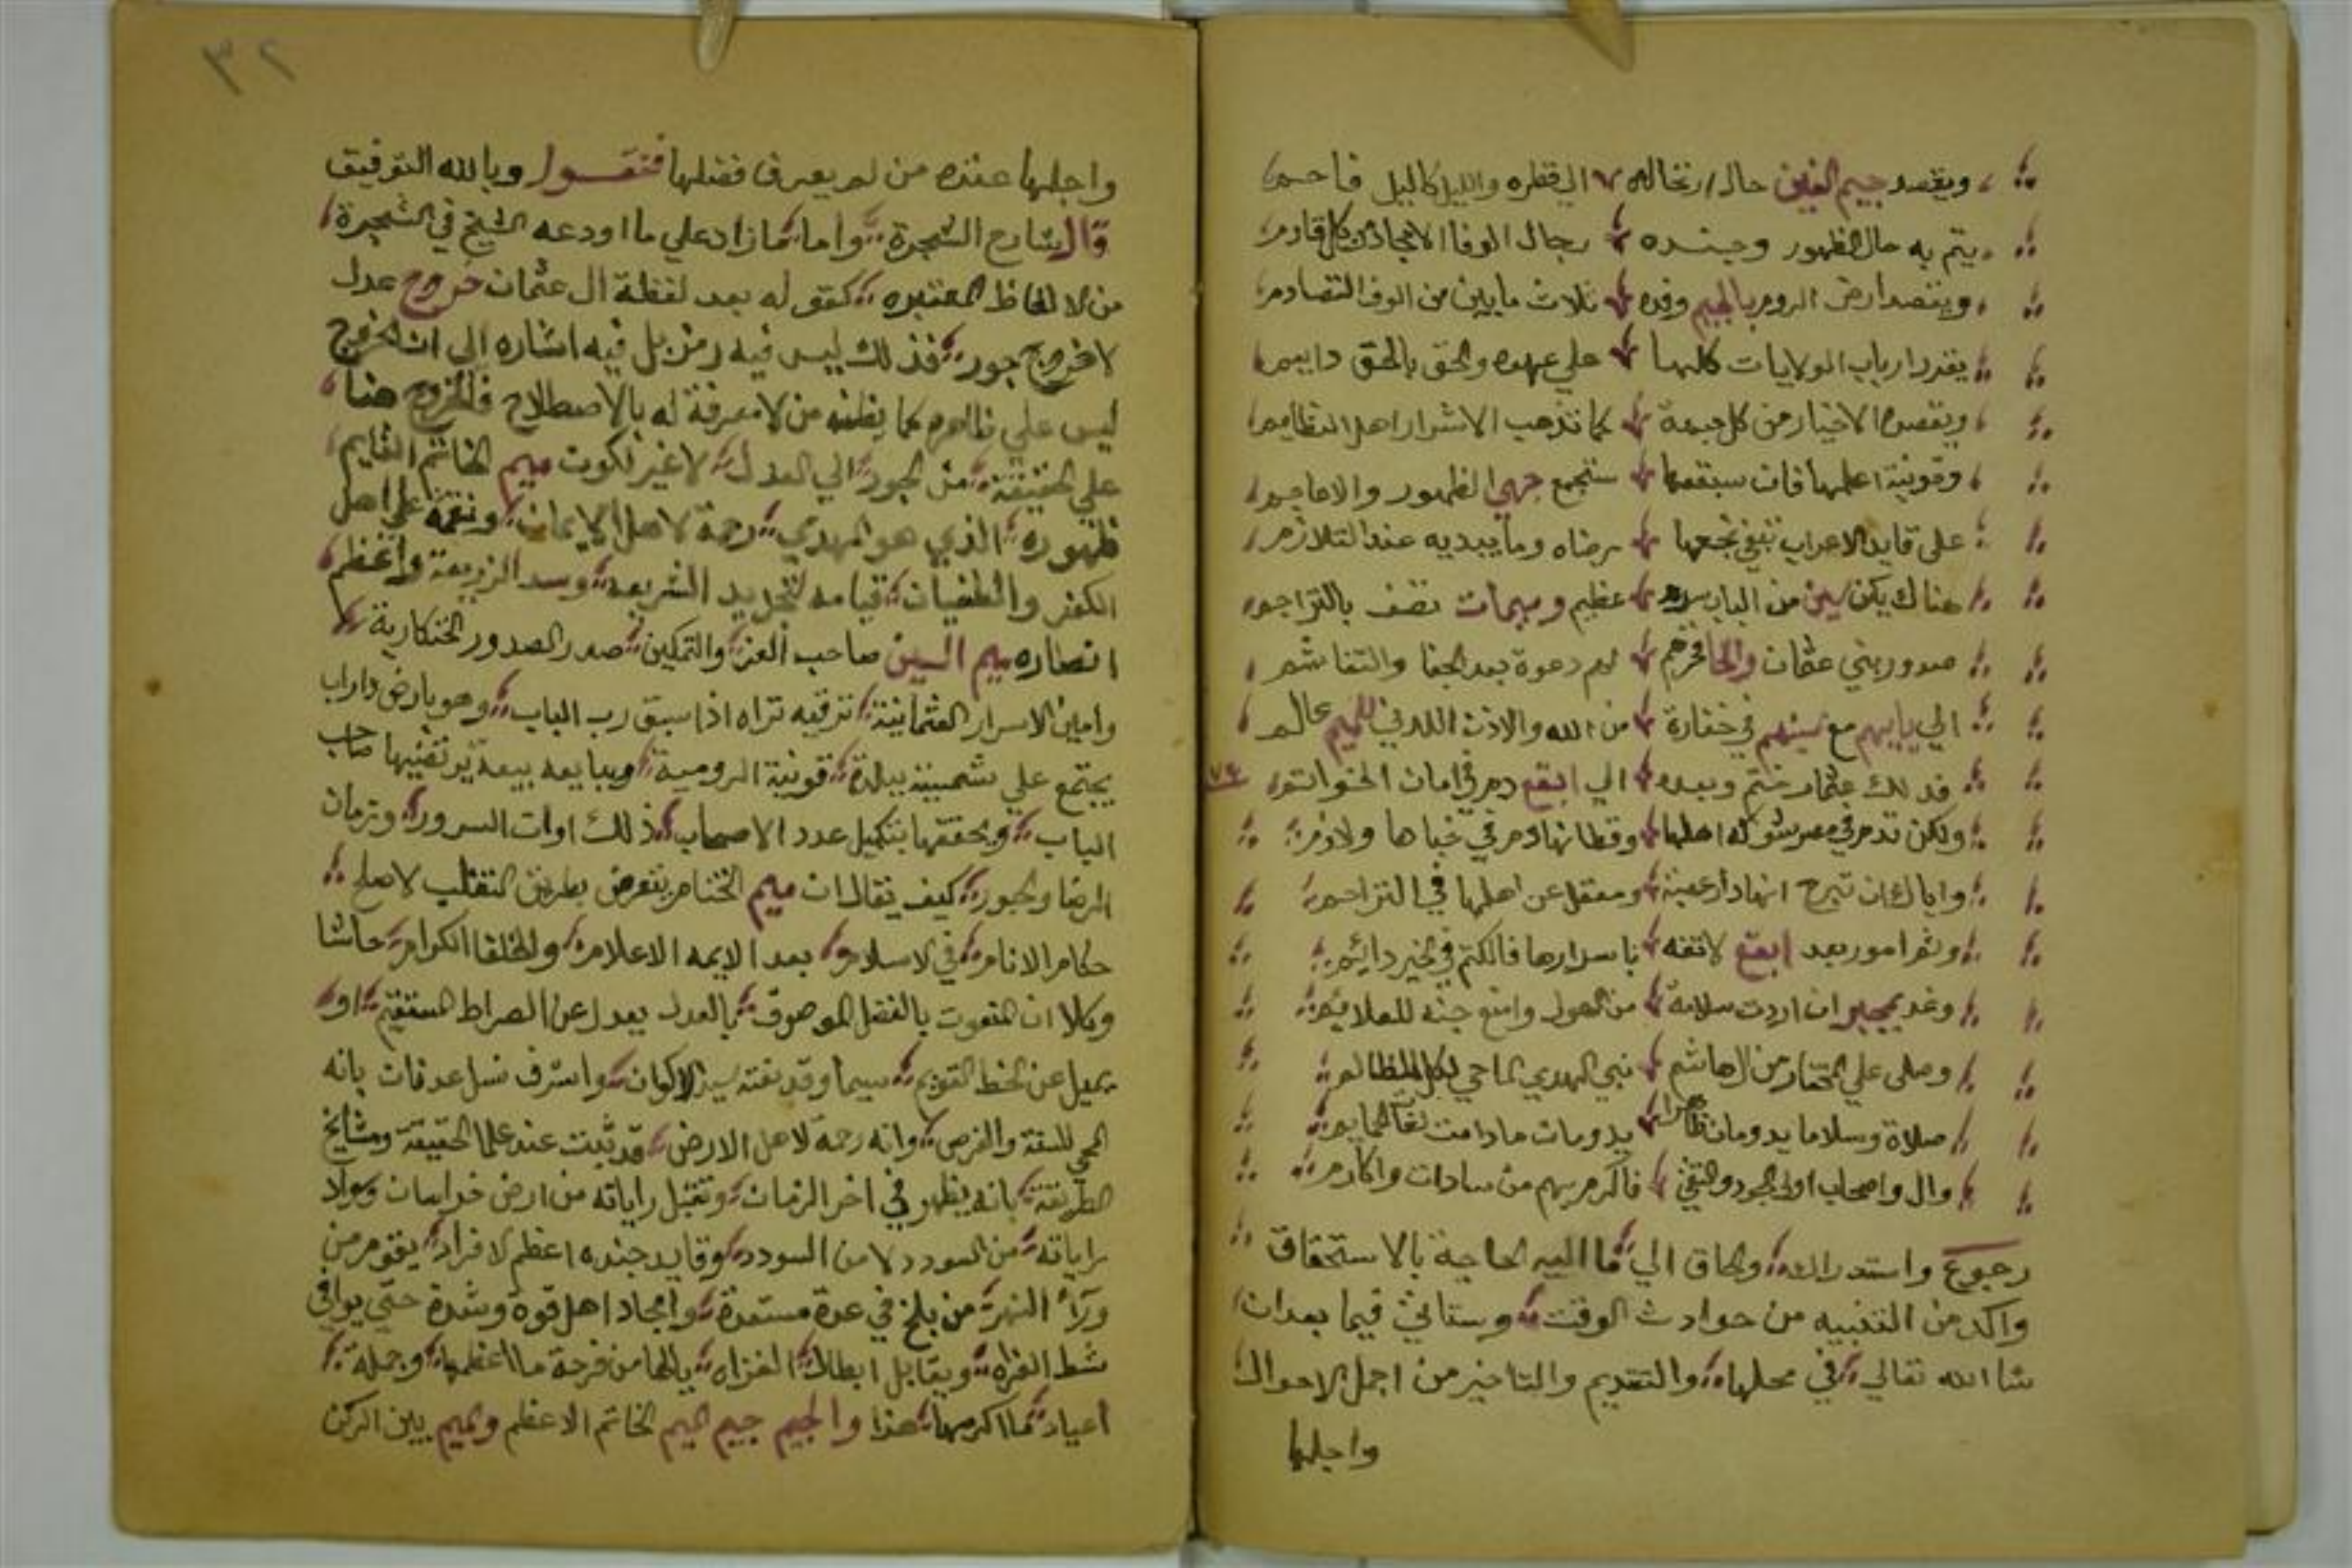 ويقسد جيم الغين حال ارتحاله الي قطره والليل كالليل فاحم
يتم به حال الظهور وجنده رجال الوفا الامجاد من كل قادم
ويقصد ارض الروم بالجيم وفده ثلاث مايين من الوف التصادم
يقرر ارباب الولايات كلها علي عهده والحق بالحق دايم
ويقصده الاخيار من كل جهة كما تذهب الاشرار اهل المظالم
وقونية اعلمها فان سبقعها ستجمع جهي الظهور والاعاجم
على قايد الاعراب تبقي تجمعها رضاه وما يبديه عند التلازم
هناك يكن سين من الباب سره عظيم وميمات تضف بالتراجم
صدور بني عثمان والحا فخرهم لهم دعوة بعد الجفا والتفاشم
الي بابهم مع سينهم في خفارة من الله والاذن اللدني للميم عالم
فدلك عثمان ختم وبيده الي ابقع دم في امان الخواتم
ولكن تدم في مصر شوكة اهلها وقطانها دم في خباها ولازم
واياك ان تبرح انها دار عينة ومعقل عن اهلها في التزاحم
وثم امور بعد ابقع لاتفه باسرارها فالكتم في الخير دائم
وغد بمجبر ان اردت سلامة من الهول وامنع جنة للعلايم
وصلى علي المختار من ال هاشم نبي الهدي الماحي لكل المظالم
صلاة وسلاما يدومان ظاهرا يدومان مادامت لغات الحمايم
وال واصحاب اولي الجود والتقي فاكرم بهم من سادات واكارم
رجوع واستدراك والحاق الي ما اليه الحاجة بالاستحقاق
واكد من التنبيه من حوادث الوقت وستاتي فيما بعد ان
شا الله تعالي في محلها والتقديم والتاخير من اجمل الاحوال
واجلها
٣٢
واجلها عنده من لم يعرف فضلها فنقول وبالله التوفيق
قال شارح الشجرة واما ما زاد علي ما اودعه الشيخ في الشجرة
من الالفاظ المعتبره كقوله بعد لفظة ال عثمان خروج عدل
لا خروج جور فذلك ليس فيه رمز بل فيه اشاره الي ان الخروج
ليس علي ظاهره كما يظنه من لا معرفة له بالاصطلاح فالخروج هنا
علي الحقيقة من الجور الي العدل لا غير لكون ميم الخاتم القايم
ظهوره الذي هو المهدي رحمة لاهل الايمان ونقمة علي اهل
الكفر والطغيان قيامه لتجديد الشريعه وسد الذريعة واعظم
انصاره ميم السين صاحب العز والتمكين صدر الصدور الخنكارية
وامين الاسرار العثمانية ترقبه تراه اذا سبق رب الباب وهو بارض داراب
يجتمع علي شحمينة ببلدة قونية الرومية ويبايعه بيعة يرتضيها صاحب
الباب ويحققها بتكميل عدد الاصحاب ذلك اوان السرور وزمان
الرضا والحبور كيف يقال ان ميم الختام يتعرض بطريق التغلب لاصلح
حكام الانام في الاسلام بعد الايمه الاعلام والخلفا الكرام حاشا
وكلا ان المنعوت بالفضل الموصوف بالعدل يعدل عن الصراط المستقيم او
يميل عن الخط القويم سيما وقد نعته سيد الاكوان واشرف نسل عدنان بانه
المحي للسنة والفرض وانه رحمة لاهل الارض قد ثبت عند علما الحقيقة ومشايخ
الطريقة بانه يظهر في اخر الزمان وتقبل راياته من ارض خراسان وسواد
راياته من السودد لا من السودد وقايد جنده اعظم الافراد يقوم من
ورآء النهر من بلخ في عدة مستعدة وامجاد اهل قوة وشدة حتي يوافي
شط الفراه ويقابل ابطال الغزاه يالها من فرحة ما اعظمها وجملة
اعياد ما اكرمها هذا والجيم جيم الميم الخاتم الاعظم والميم بين الركن